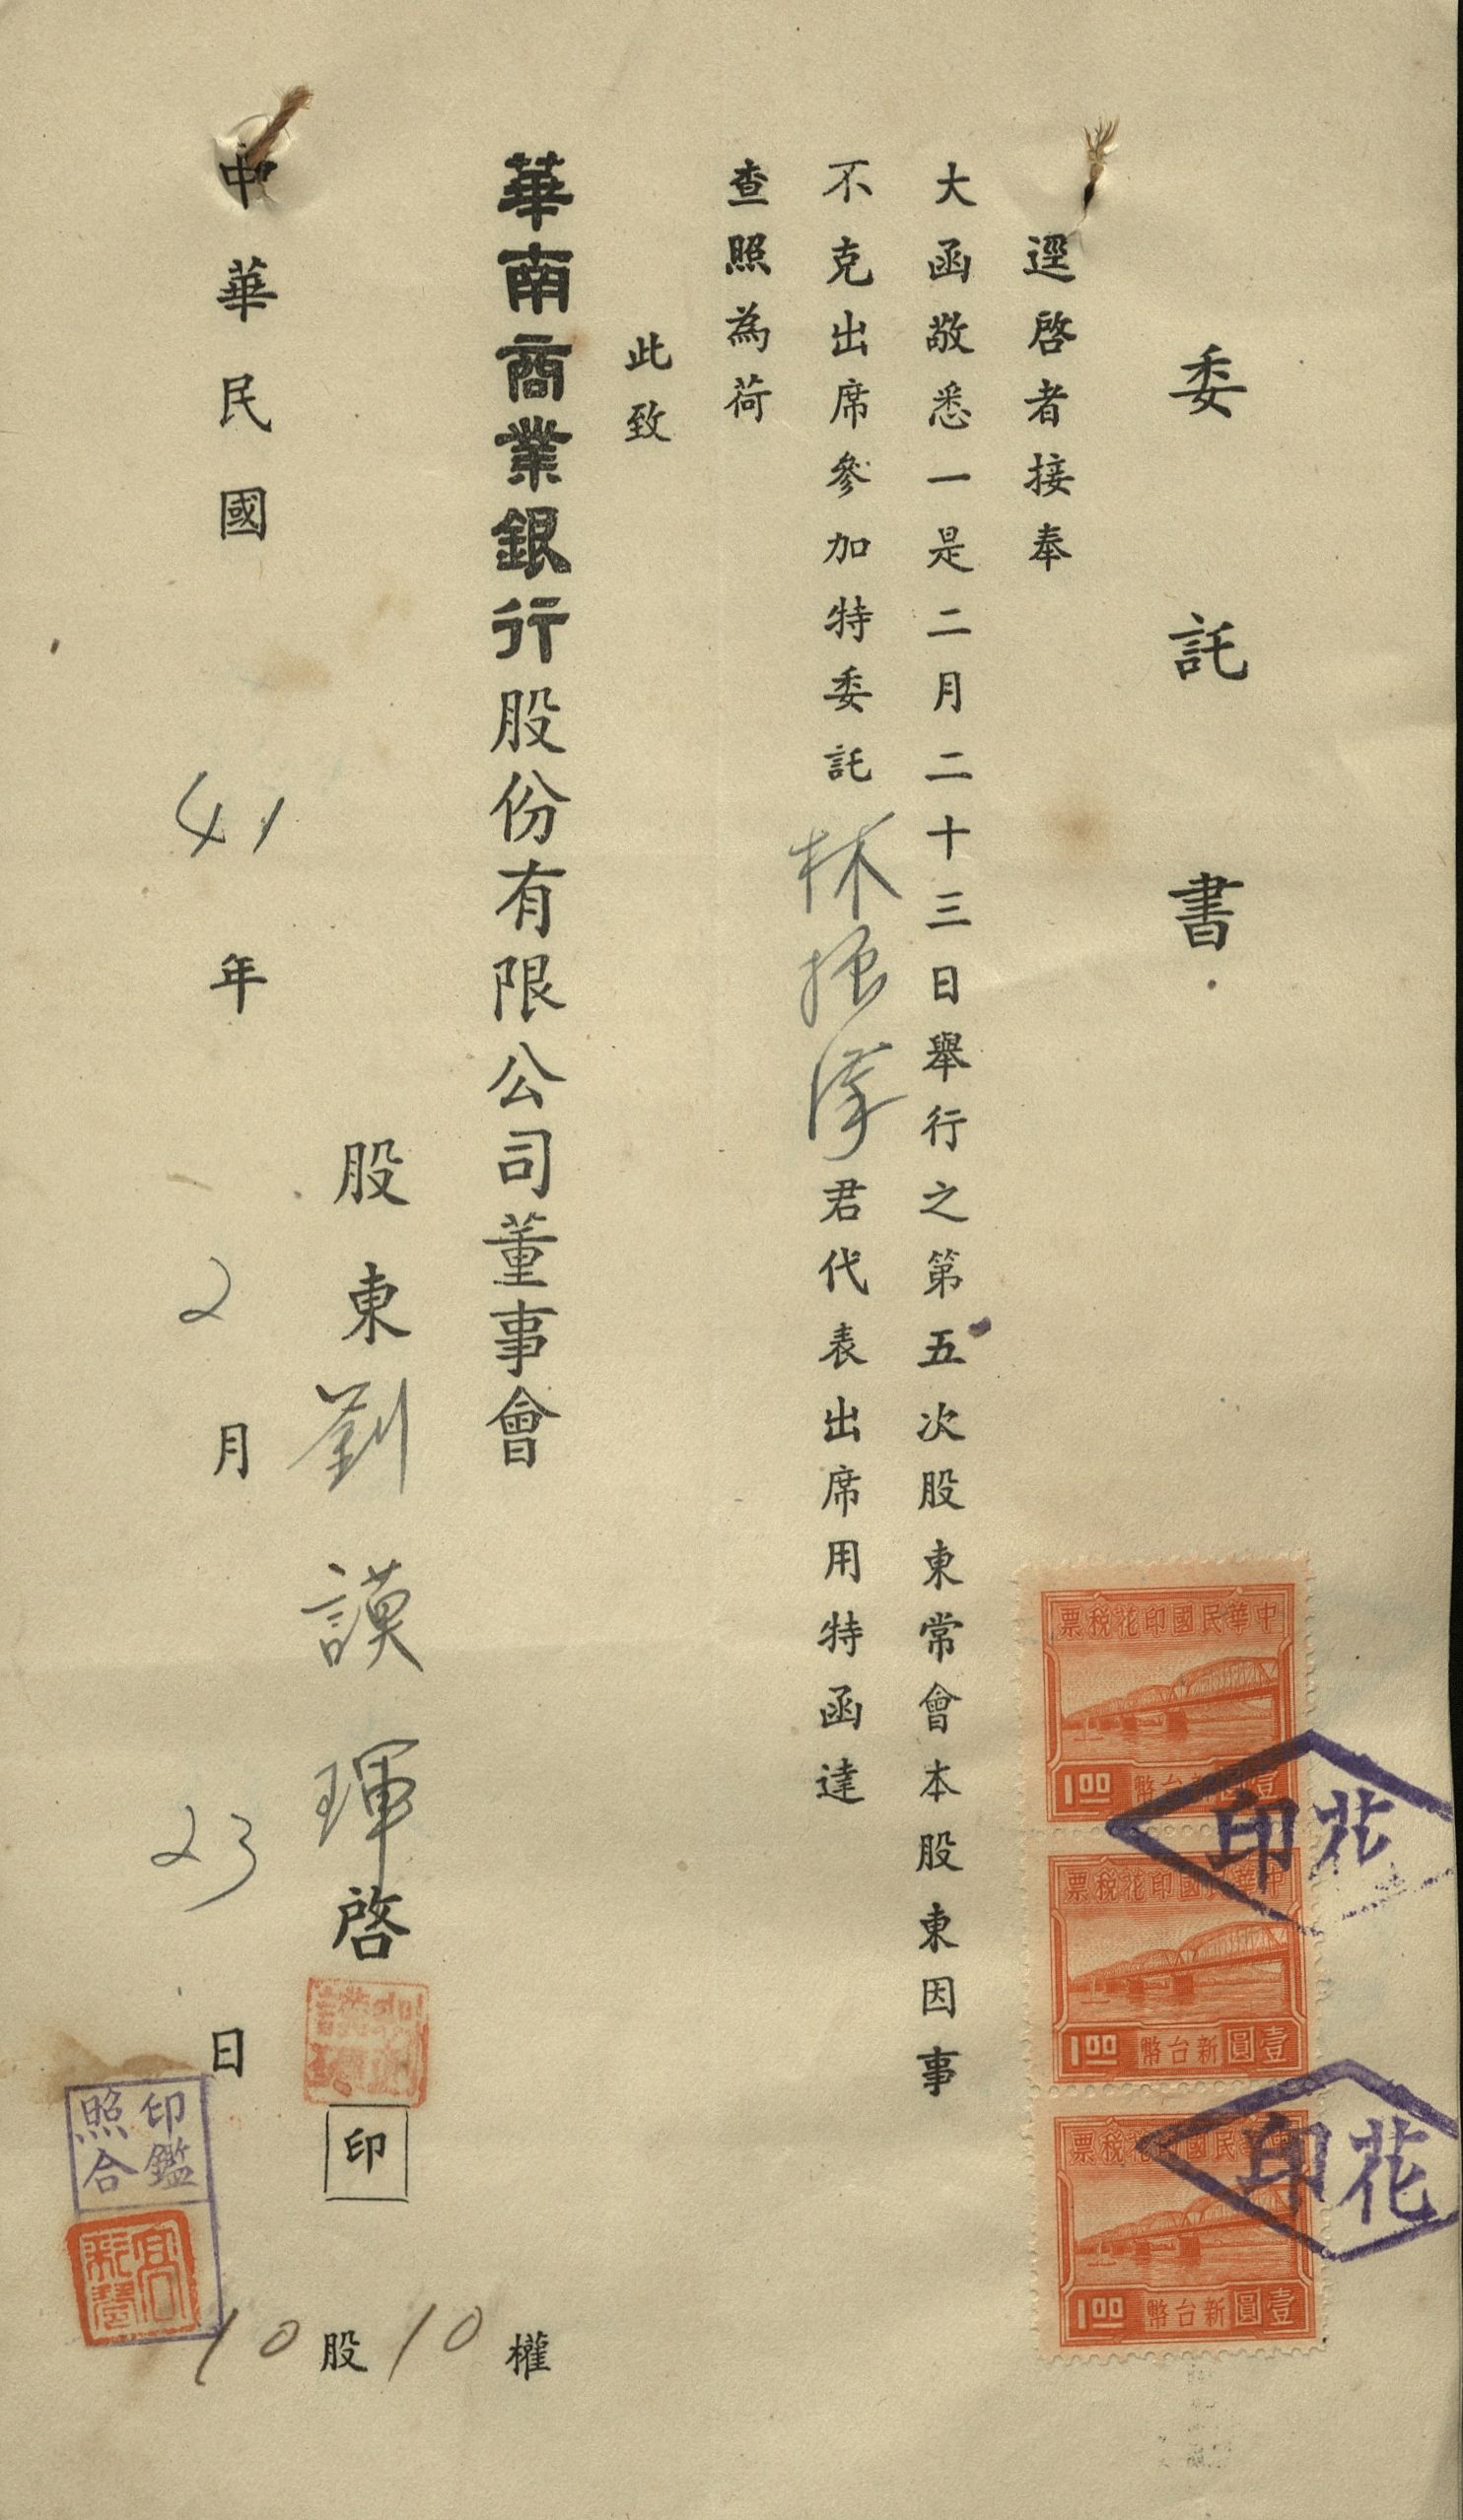 委託書
逕啓者接奉
大函敬悉一是二月二十三日舉行之第五次股東常會本股東因事
不克出席參加特委託林振漢君代表出席用特函達
查照為荷
此致
華南商業銀行股份有限公司董事會
股東劉謨琿啓
印
10股10權
中華民國41年2月23日
中華民國印花稅票
壹圓新台幣
1.00
花印
中華民國印花稅票
壹圓新台幣
1.00
中華民國印花稅票
壹圓新台幣
1.00
花印
印鑑
照合